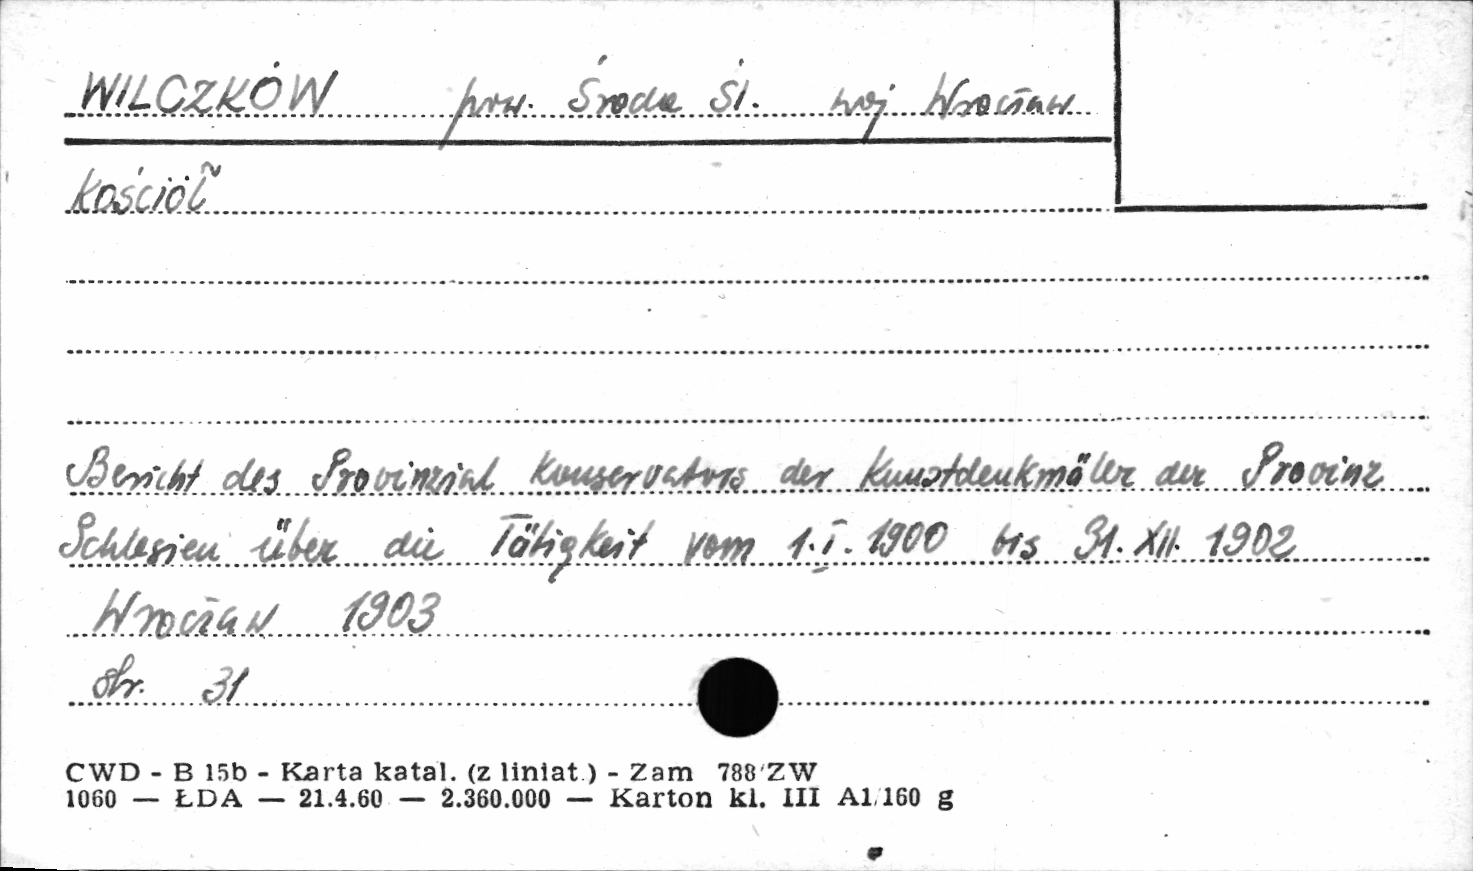 WILCZKÓW pow. Środa Śl. woj Wrocław
Kościół
Bericht des Provinzial Konservators der Kunstdenkmäler der Provinz
Schlesien über die Tätigkeit vom 1.I.1900 bis 31.XII.1902
Wrocław 1903
str. 31
CWD - B 15b - Karta katal. (z liniat.) - Zam 788/ZW
1060 — ŁDA — 21.4.60 — 2.360.000 — Karton kl. III A1/160 g